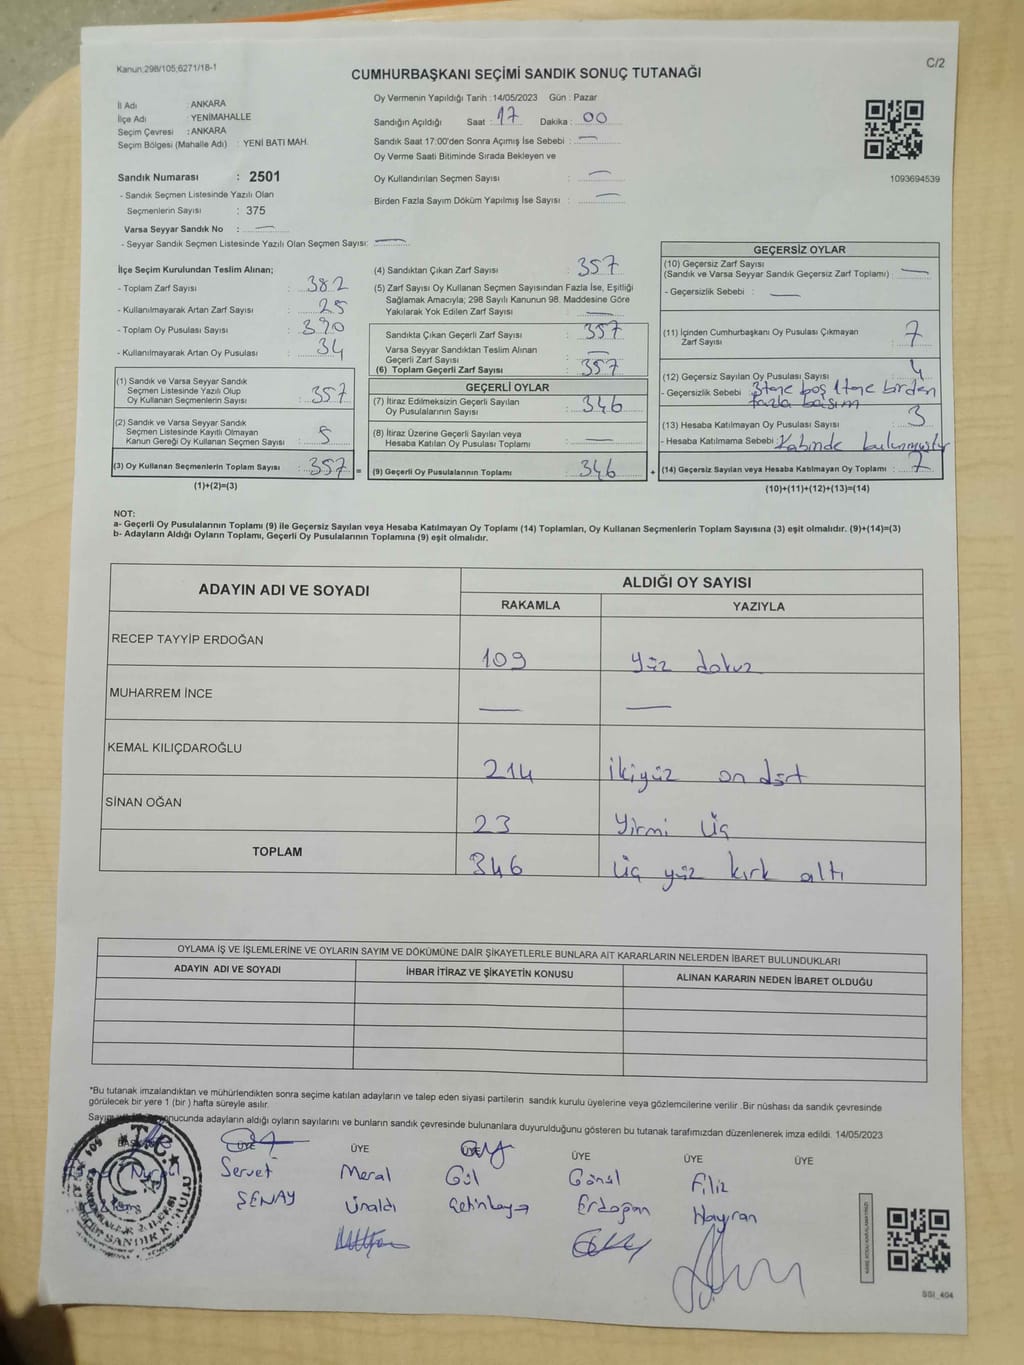 Kanun:298/105,6271/18-1
C/2
CUMHURBAŞKANI SEÇİMİ SANDIK SONUÇ TUTANAĞI
İl Adı : ANKARA
İlçe Adı : YENİMAHALLE
Seçim Çevresi : ANKARA
Seçim Bölgesi (Mahalle Adı) : YENİ BATI MAH.
Sandık Numarası : 2501
- Sandık Seçmen Listesinde Yazılı Olan
Seçmenlerin Sayısı : 375
Varsa Seyyar Sandık No : —
- Seyyar Sandık Seçmen Listesinde Yazılı Olan Seçmen Sayısı: —
Oy Vermenin Yapıldığı Tarih : 14/05/2023 Gün : Pazar
Sandığın Açıldığı Saat : 17 Dakika : 00
Sandık Saat 17:00'den Sonra Açımış İse Sebebi : —
Oy Verme Saati Bitiminde Sırada Bekleyen ve
Oy Kullandırılan Seçmen Sayısı : —
Birden Fazla Sayım Döküm Yapılmış İse Sayısı : —
1093694539
İlçe Seçim Kurulundan Teslim Alınan;
- Toplam Zarf Sayısı : 382
- Kullanılmayarak Artan Zarf Sayısı : 25
- Toplam Oy Pusulası Sayısı : 390
- Kullanılmayarak Artan Oy Pusulası : 34
(1) Sandık ve Varsa Seyyar Sandık
Seçmen Listesinde Yazılı Olup
Oy Kullanan Seçmenlerin Sayısı : 357
(2) Sandık ve Varsa Seyyar Sandık
Seçmen Listesinde Kayıtlı Olmayan
Kanun Gereği Oy Kullanan Seçmen Sayısı :
(3) Oy Kullanan Seçmenlerin Toplam Sayısı : 357 =
(1)+(2)=(3)
(4) Sandıktan Çıkan Zarf Sayısı : 357
(5) Zarf Sayısı Oy Kullanan Seçmen Sayısından Fazla İse, Eşitliği
Sağlamak Amacıyla; 298 Sayılı Kanunun 98. Maddesine Göre
Yakılarak Yok Edilen Zarf Sayısı : —
Sandıkta Çıkan Geçerli Zarf Sayısı : 357
Varsa Seyyar Sandıktan Teslim Alınan
Geçerli Zarf Sayısı : —
(6) Toplam Geçerli Zarf Sayısı : 357
GEÇERLİ OYLAR
(7) İtiraz Edilmeksizin Geçerli Sayılan
Oy Pusulalarının Sayısı : 346
(8) İtiraz Üzerine Geçerli Sayılan veya
Hesaba Katılan Oy Pusulaları Toplamı : —
(9) Geçerli Oy Pusulalarının Toplamı : 346 +
GEÇERSİZ OYLAR
(10) Geçersiz Zarf Sayısı
(Sandık ve Varsa Seyyar Sandık Geçersiz Zarf Toplamı) : —
- Geçersizlik Sebebi : —
(11) İçinden Cumhurbaşkanı Oy Pusulası Çıkmayan
Zarf Sayısı : 7
(12) Geçersiz Sayılan Oy Pusulası Sayısı : 4
- Geçersizlik Sebebi : 3tane boş 1tane birden
fazla basım
(13) Hesaba Katılmayan Oy Pusulası Sayısı : 3
- Hesaba Katılmama Sebebi : Kabinde bulunmuştur
(14) Geçersiz Sayılan veya Hesaba Katılmayan Oy Toplamı : 7
(10)+(11)+(12)+(13)=(14)
NOT:
a- Geçerli Oy Pusulalarının Toplamı (9) ile Geçersiz Sayılan veya Hesaba Katılmayan Oy Toplamı (14) Toplamları, Oy Kullanan Seçmenlerin Toplam Sayısına (3) eşit olmalıdır. (9)+(14)=(3)
b- Adayların Aldığı Oyların Toplamı, Geçerli Oy Pusulalarının Toplamına (9) eşit olmalıdır.
ADAYIN ADI VE SOYADI
ALDIĞI OY SAYISI
RAKAMLA YAZIYLA
RECEP TAYYİP ERDOĞAN 109 yüz dokuz
MUHARREM İNCE — —
KEMAL KILIÇDAROĞLU 214 ikiyüz on dört
SİNAN OĞAN 23 Yirmi üç
TOPLAM 346 üç yüz kırk altı
OYLAMA İŞ VE İŞLEMLERİNE VE OYLARIN SAYIM VE DÖKÜMÜNE DAİR ŞİKAYETLERLE BUNLARA AİT KARARLARIN NELERDEN İBARET BULUNDUKLARI
ADAYIN ADI VE SOYADI İHBAR İTİRAZ VE ŞİKAYETİN KONUSU ALINAN KARARIN NEDEN İBARET OLDUĞU
*Bu tutanak imzalandıktan ve mühürlendikten sonra seçime katılan adayların ve talep eden siyasi partilerin sandık kurulu üyelerine veya gözlemcilerine verilir .Bir nüshası da sandık çevresinde
görülecek bir yere 1 (bir ) hafta süreyle asılır.
Sayım onucunda adayların aldığı oyların sayılarını ve bunların sandık çevresinde bulunanlara duyurulduğunu gösteren bu tutanak tarafımızdan düzenlenerek imza edildi. 14/05/2023
ÜYE ÜYE ÜYE ÜYE ÜYE ÜYE
Servet Meral Gül Gönül Filiz
ŞENAY Ünaldı Çetinkaya Erdoğan Hayran
T.C.
SANDIK KURULU
SSI_404